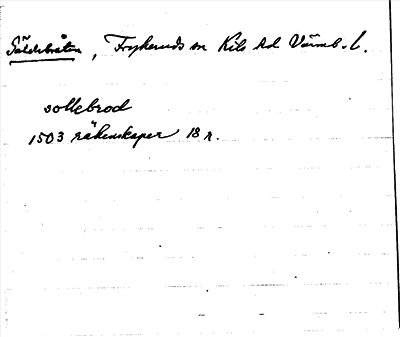 Sölderbråten, Frykeruds sn Kils hd Värml. l.
sollebrod
1503 räkenskaper 18 r.